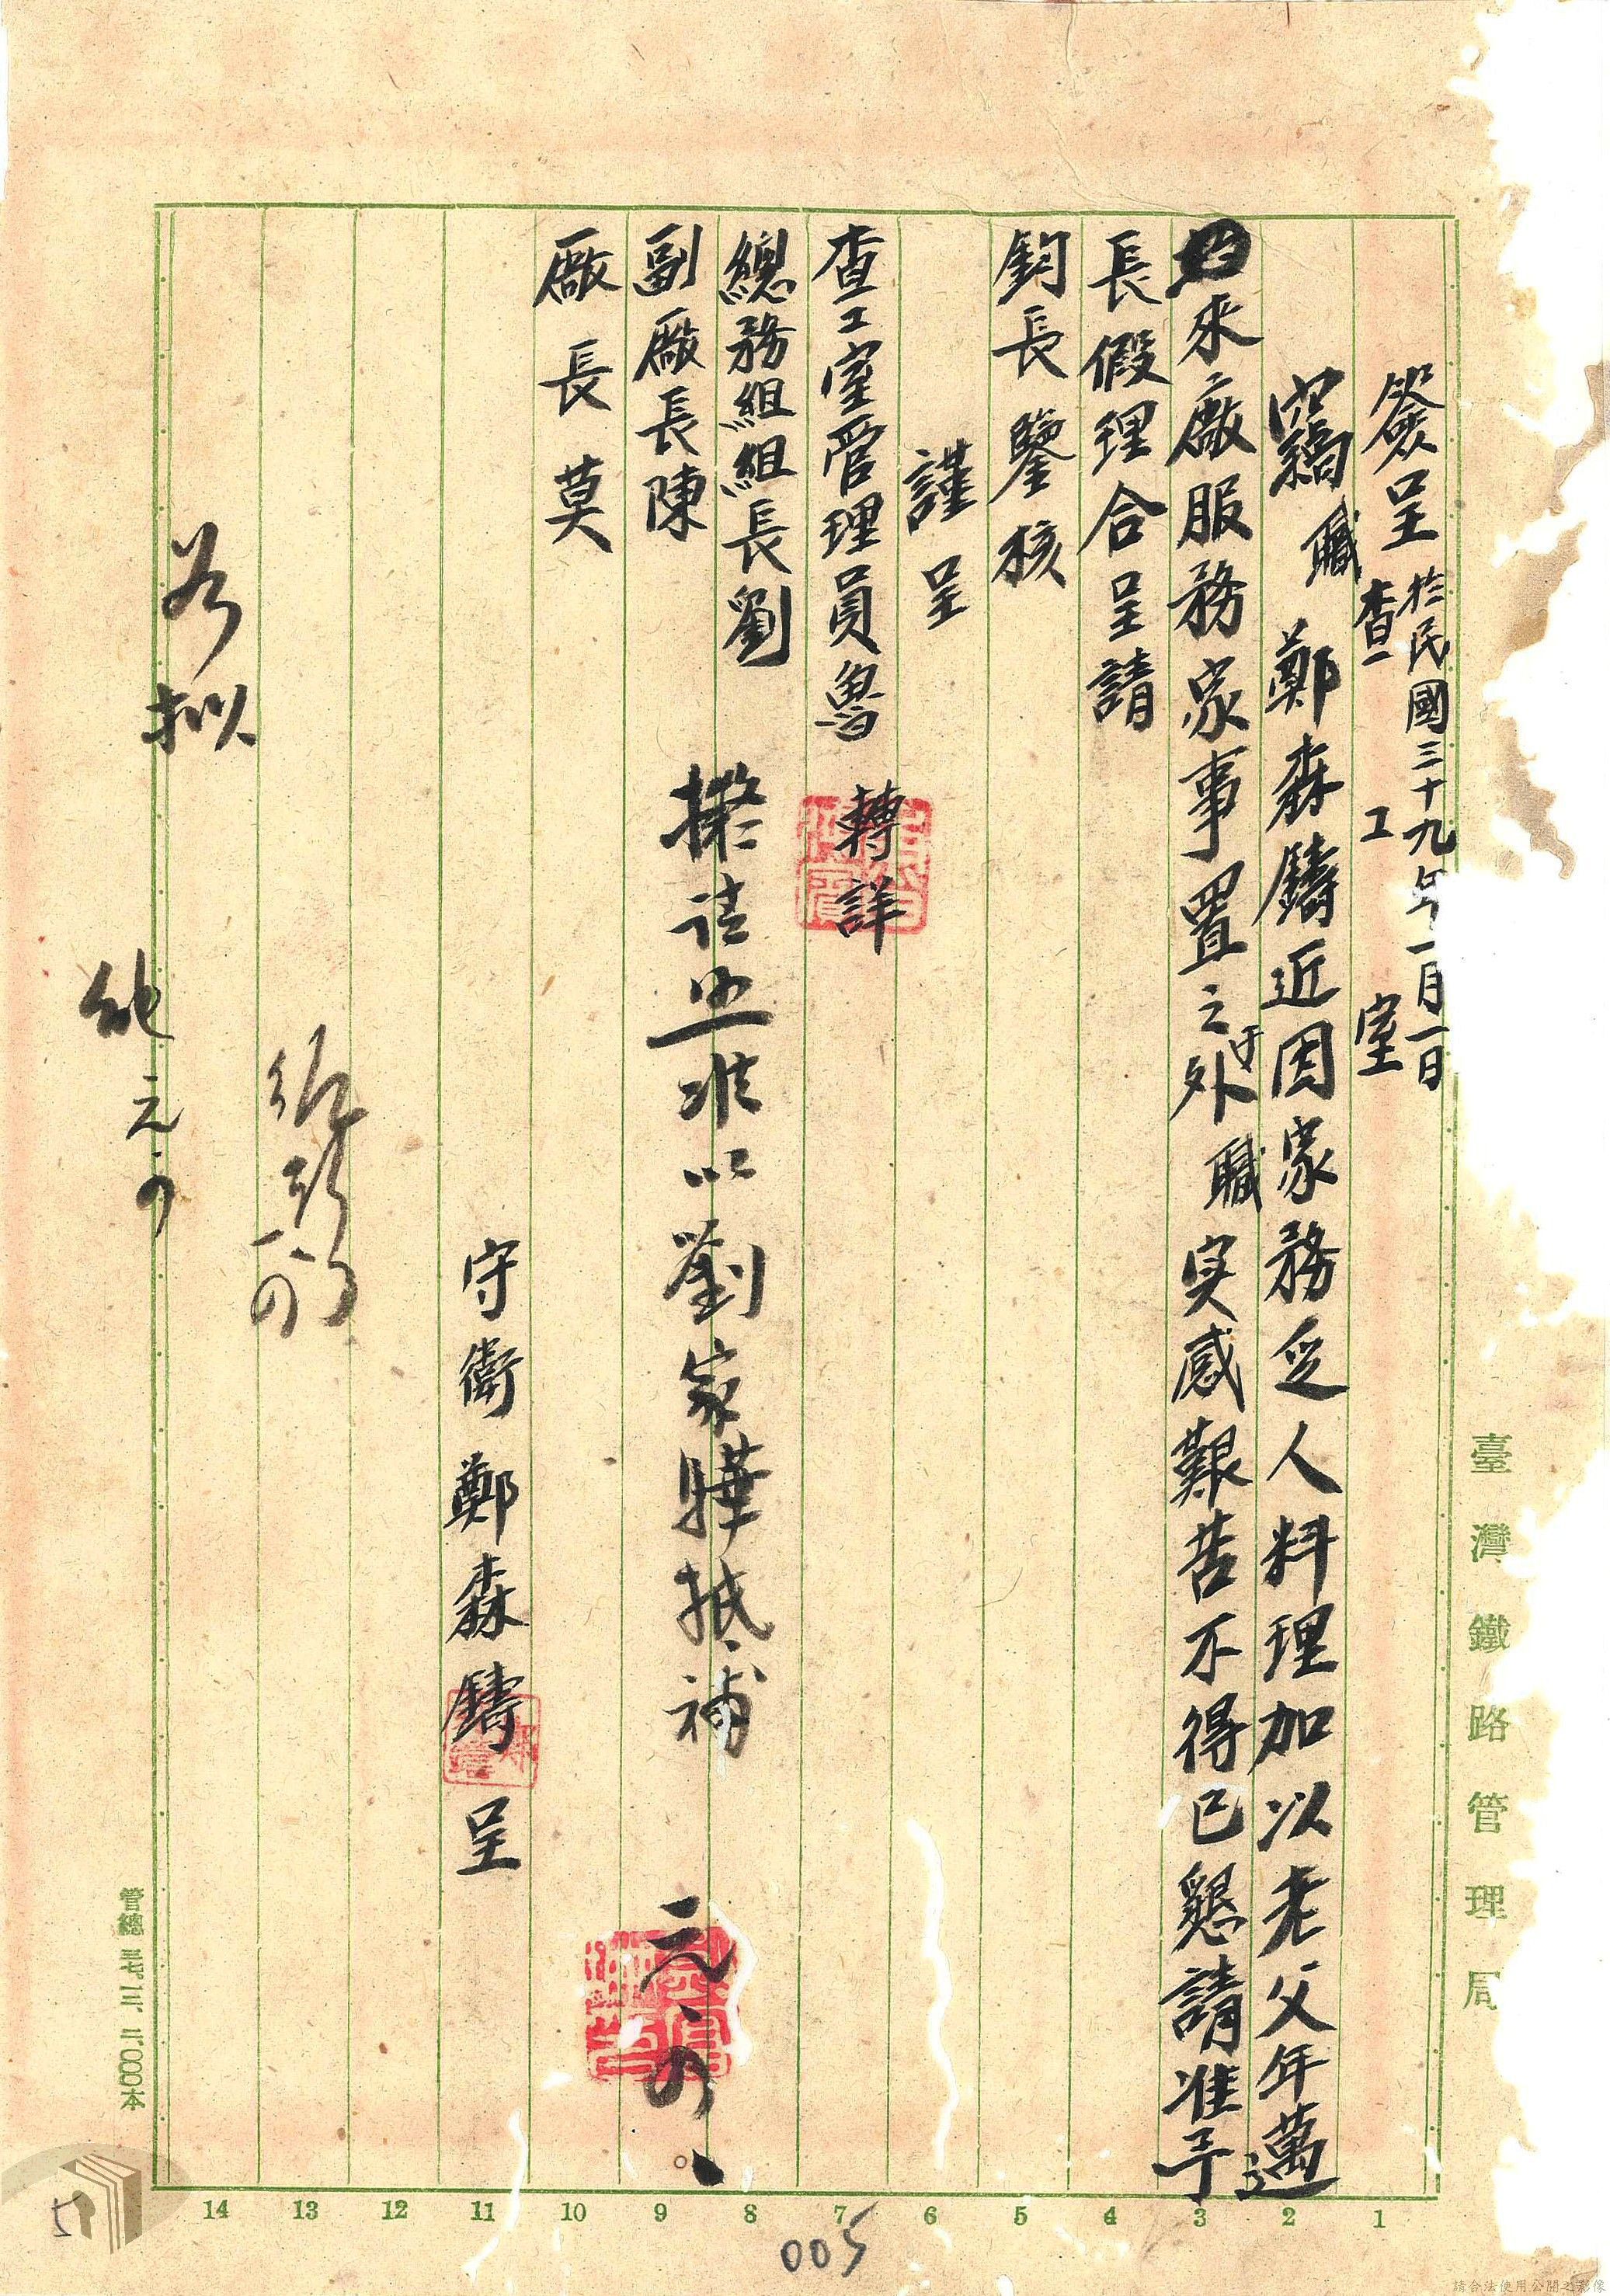 臺灣鐵路管理局
簽呈 於民國三十九年一月一日
查工室
竊職鄭森鑄近因家務乏人料理加以老父年邁
來廠服務家事置之于外職实感艱苦不得已懇請准予
長假理合呈請
鈞長鑒核
謹呈
查工室管理員魯 轉詳
總務組組長劉
副廠長陳
廠長莫
擬請照准以劉家驊抵補
元、四、
守衛鄭森鑄呈
一、四
若拟
元、四
管總 三七.三.三.000本
14 13 12 11 10 9 8 7 6 5 4 3 2 1
005
5
請合法使用公開之影像